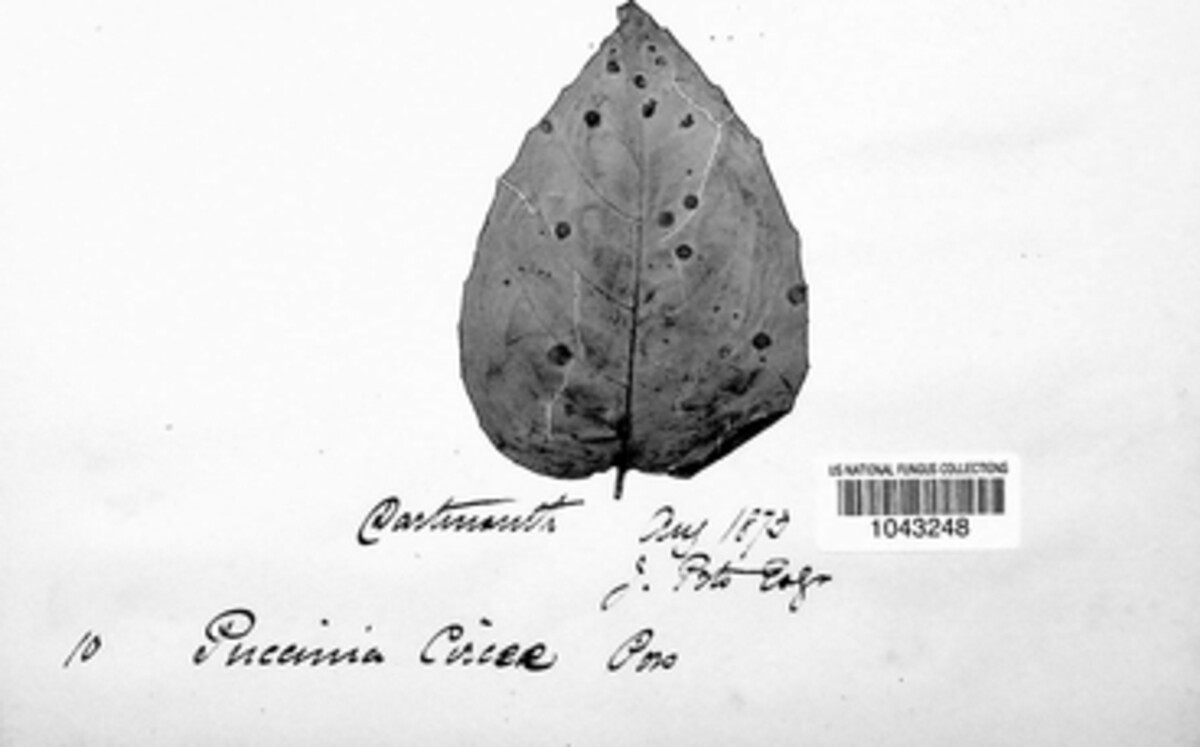 US NATIONAL FUNGUS COLLECTIONS
1043248
Dartmouth Aug 1873
J.
10 Puccinia Circeae Pers